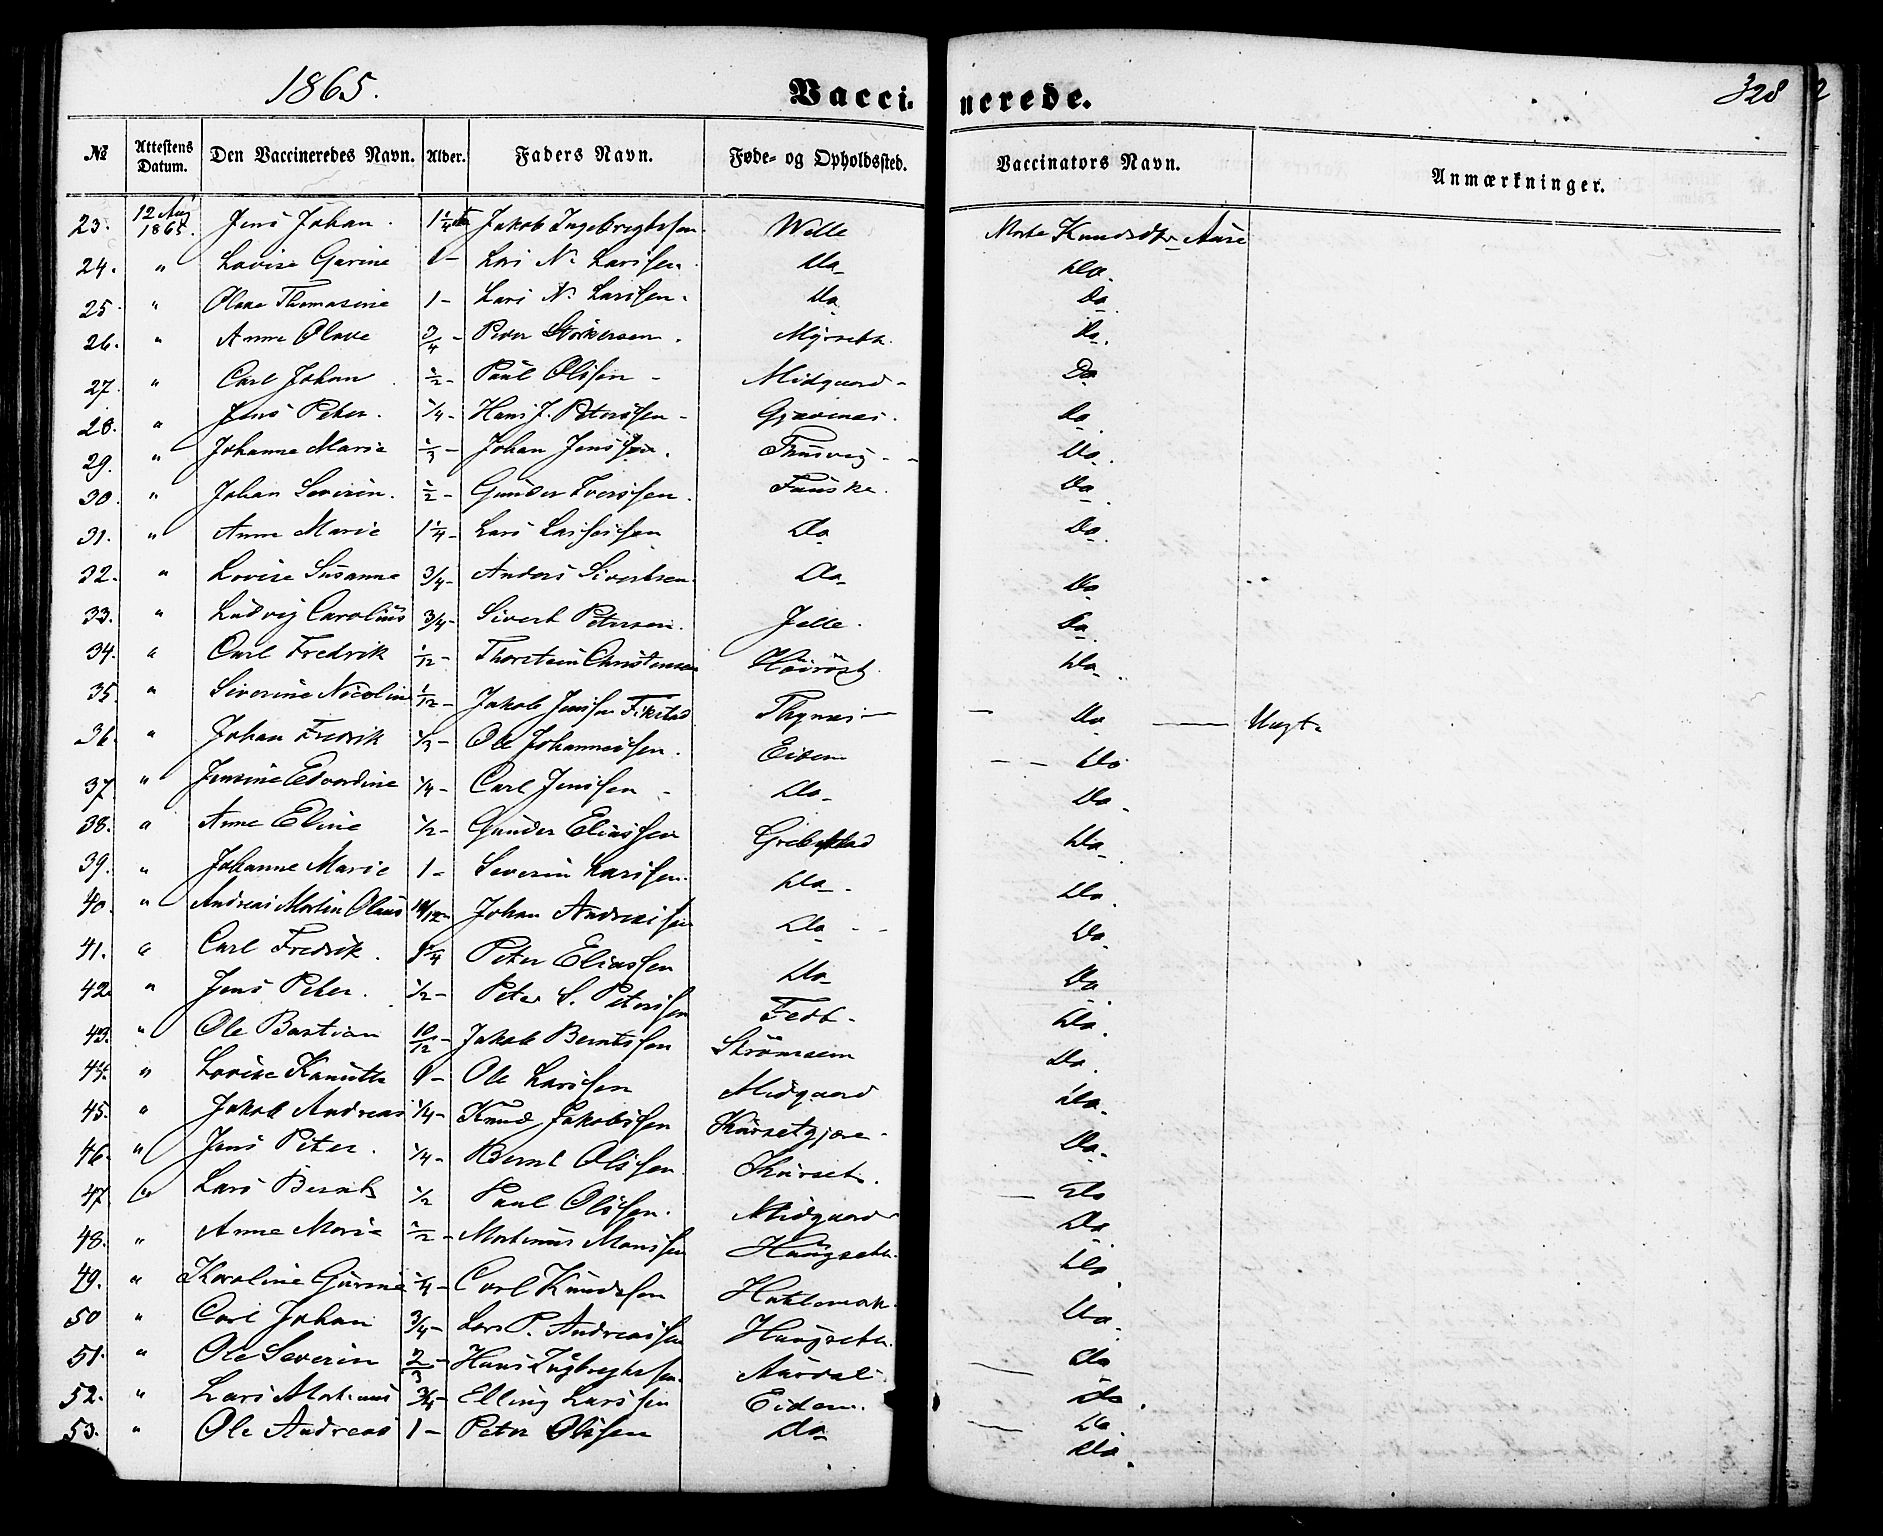 1865.
Vaccinerede.
328
№ Attestens Datum. Den Vaccineredes Navn. Alder. Faders Navn. Føde- og Opholdssted. Vaccinators Navn. Anmærkninger.
23. 12 Aug 1865. Jens Johan. 1 1/4 Jakob Ingebregtssen Welle Marte Knudsdtr Aase
24. " Lovise Gurine 1 - Lars N. Larssen Do Do.
25. " Olave Thomasine 1 - Lars N. Larssen. Do Do.
26. " Anne Olave 3/4 - Peder Do.
27. " Carl Johan 1/2 - Paul Olssen - Midgaard - Do
28. " Jens Peter. 1/4 - Hans J. Peterssen - Gjævenes. Do
29. " Johanne Marie 1/3 - Johan Jenssen. Do.
30. " Johan Severin. 1/2 - Gunder Iverssen. Fauske. Do
31. " Anne Marie 1 1/4 - Lars Larssen Do Do.
32. " Lovise Susanne 3/4 - Anders Sivertsen. Do - Do
33. " Ludvig Carolius 3/4 - Sivert Petersen. Jelle. Do.
34. " Carl Fredrik 1/12 - Thorstein Christensen Do.
35. " Siverine Nicoline 1/12 - Jakob Jenssen Fikstad Thynes - Do
36. " Johan Fredrik 1/3 - Ole Johannessen. Eidem Do
37. " Jensine Edvardine 1/4 - Carl Jenssen - Do - Do -
38. " Anne Eline 1/2 - Gunder Eliassen Grebstad Do -
39. " Johanne Marie 1 - Severin Larssen. Do - Do.
40. " Andreas Martin Olaus 10/12 - Johan Andreassen Do Do.
41. " Carl Fredrik. 1/4 Peter Eliassen Do - Do
42. " Jens Peter. 1/2 - Peter S. Peterssen Fedt - Do.
43. " Ole Bastian 10/12 - Jakob Berntssen Strömsem Do.
44. " Lovise Kanutte 1 - Ole Larssen Midgaard Do -
45. " Jakob Andreas 1/4 - Knud Jakobssen Kursetgjære - Do -
46. " Jens Peter. 1/4 - Bernt Olssen. Kurset. Do
47. " Lars Bernt 1/2 Paul Olssen. Midgaard Do
48. " Anne Marie 1/2 - Martinus Monssen Haugseth. Do
49. " Karoline Gurine 1/4 - Carl Knudssen Do.
50 " Carl Johan 3/4 - Lars P. Andreassen Haugseth. Do
51. " Ole Severin 2/3 - Hans Ingbregtssen. Aurdal. Do.
52. " Lars Martinus 3/4 - Elling Larssen Eidem. Do
53. " Ole Andreas 1 - Peter Olssen Do Do.